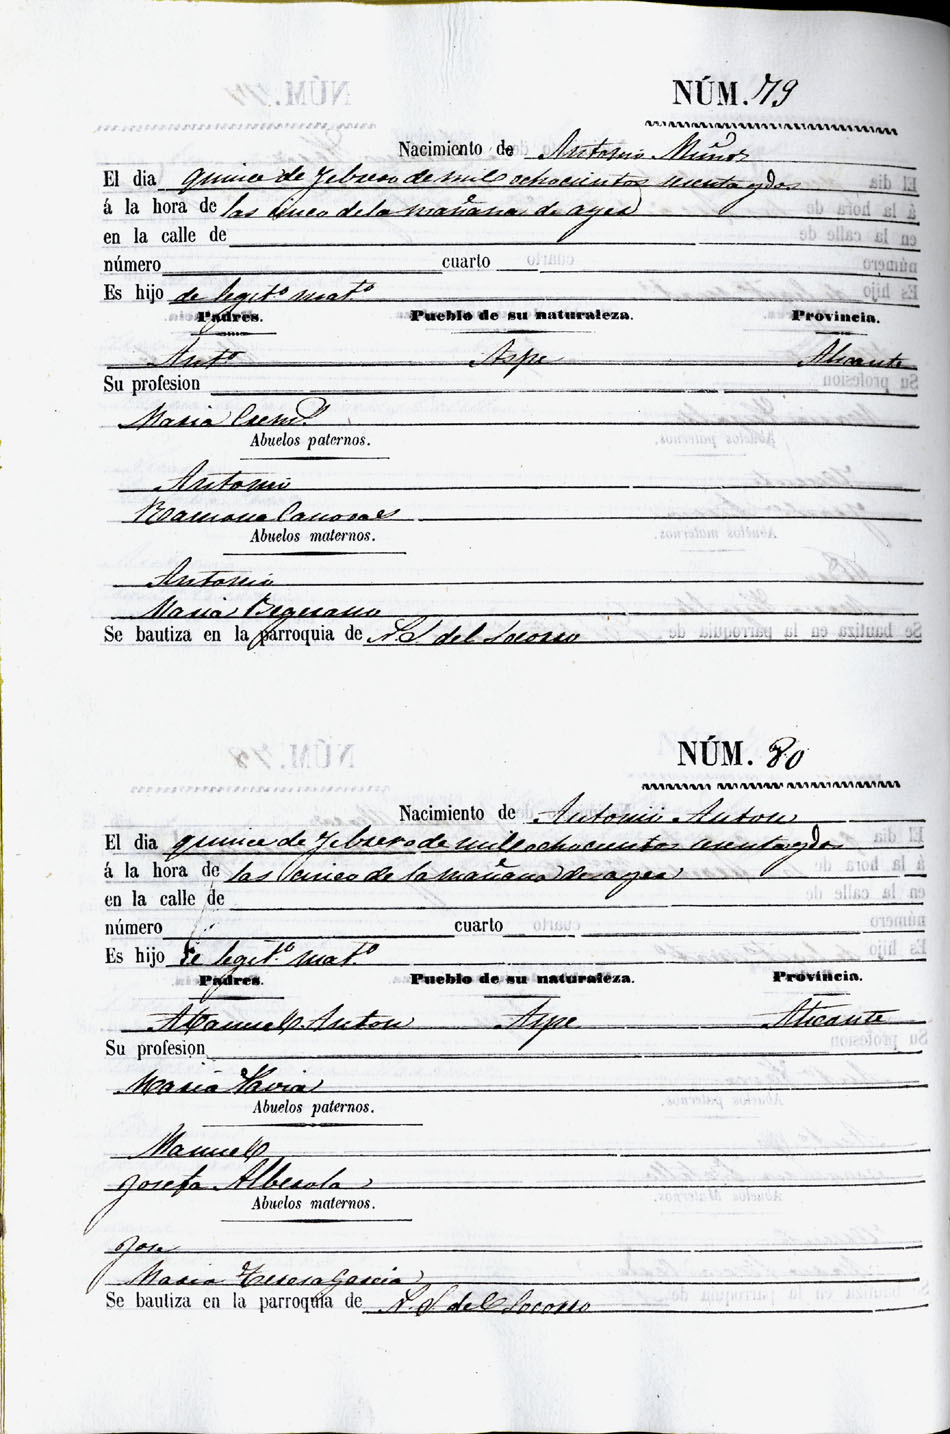 NÚM. 79
Nacimiento de Antonio Muñoz
El dia quince de Febrero de mil ochocientos sesenta y dos
á la hora de las cinco de la mañana de ayer
en la calle de
número cuarto
Es hijo de legit.º mat.º
Padres. Pueblo de su naturaleza. Provincia.
Ant.º Aspe Alicante
Su profesion
Maria Crem.s
Abuelos paternos.
Antonio
Ramona Canovas
Abuelos maternos.
Antonio
Maria Begerano
Se bautiza en la parroquia de N. S. del Socorro
NÚM. 80
Nacimiento de Antonio Anton
El dia quince de Febrero de mil ochocientos sesenta y dos
á la hora de las cinco de la mañana de ayer
en la calle de
número cuarto
Es hijo de legit.º mat.º
Padres. Pueblo de su naturaleza. Provincia.
Manuel Anton Aspe Alicante
Su profesion
Maria
Abuelos paternos.
Manuel
Josefa Alberola
Abuelos maternos.
Jose
Maria Teresa Garcia
Se bautiza en la parroquia de N. S. del Socorro